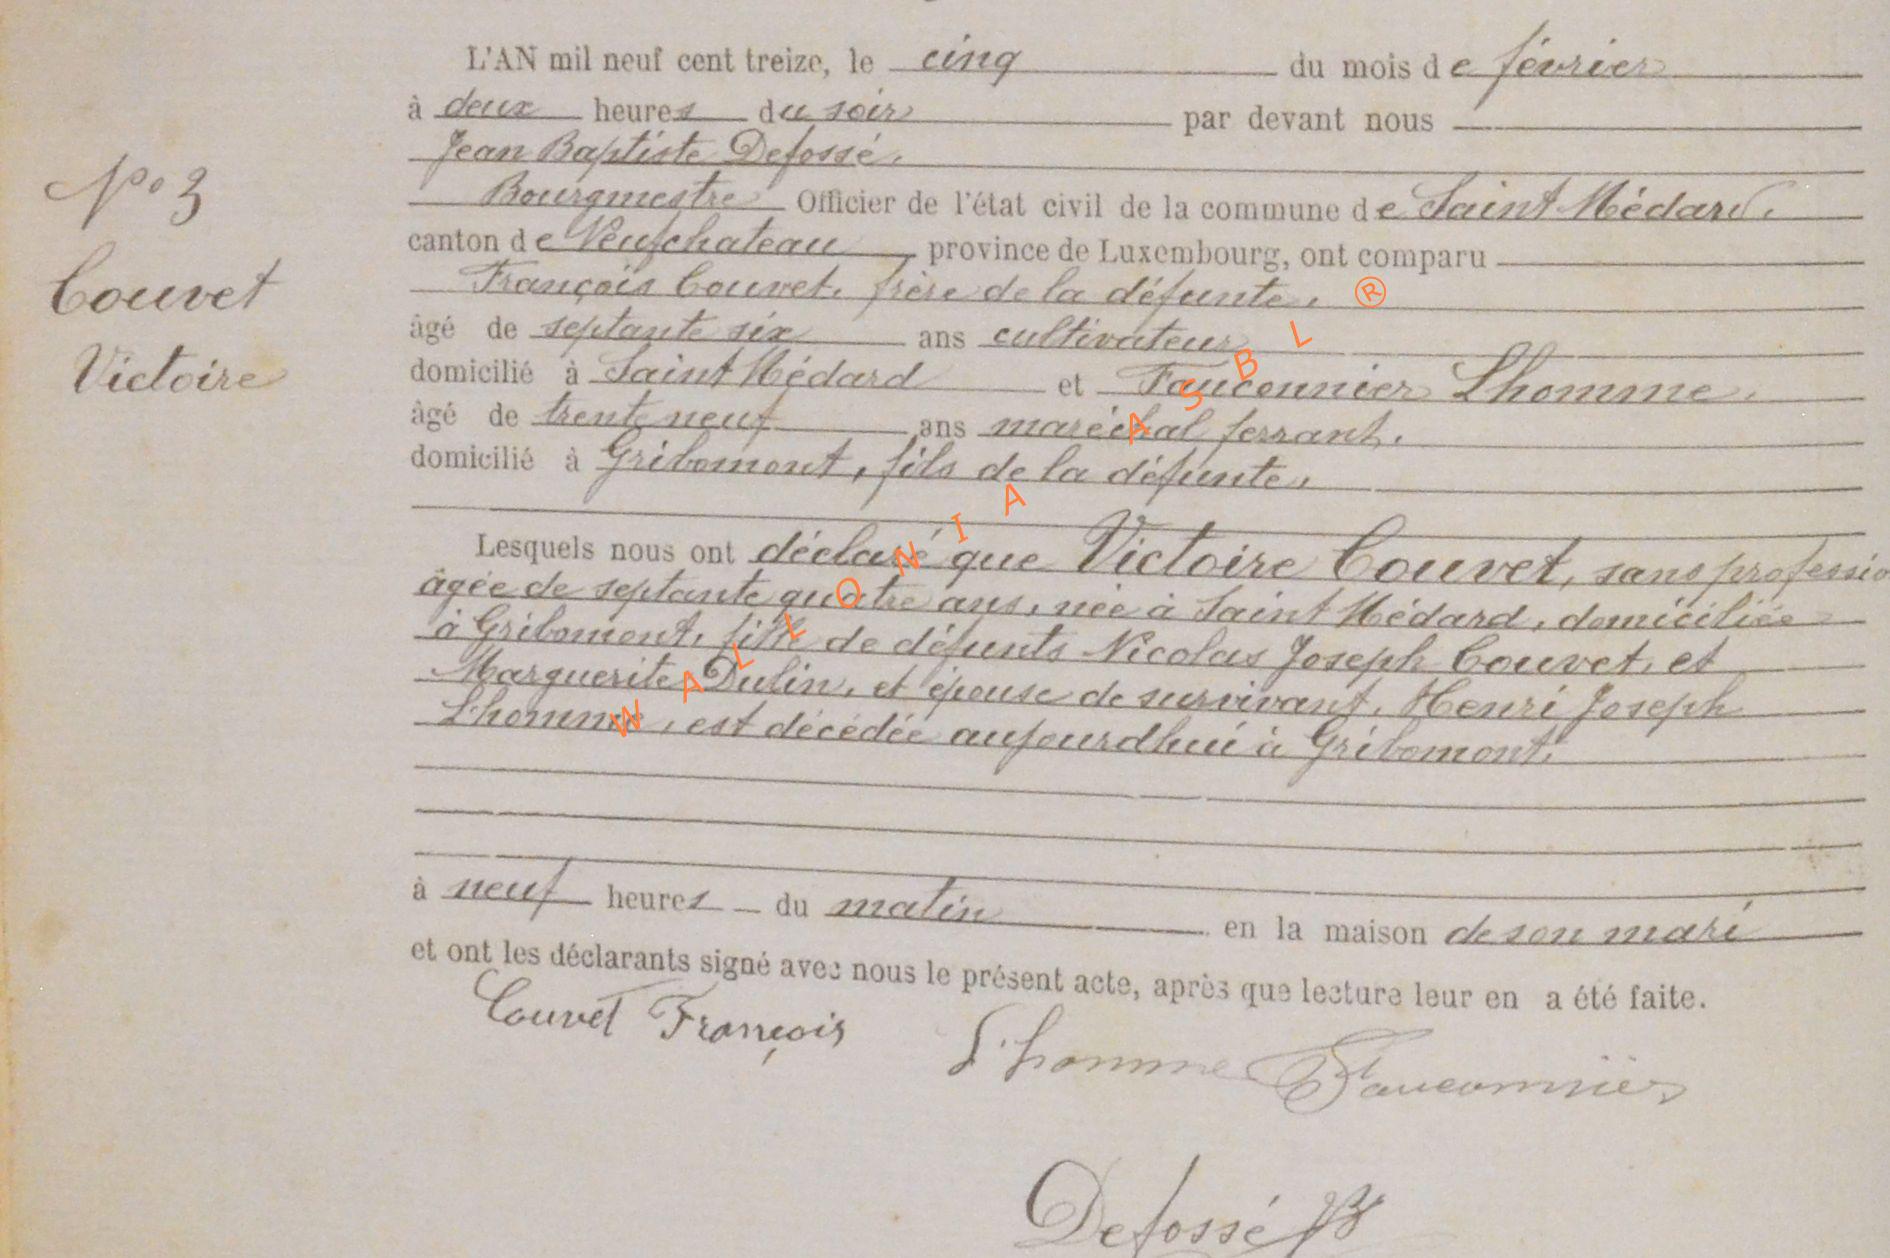 L'AN mil neuf cent treize, le cinq du mois de février
à deux heures du soir par devant nous
Jean Baptiste Defossé.
Bourgmestre Officier de l'état civil de la commune de Saint Médard.
N° 3
canton de Neufchateau, province de Luxembourg, ont comparu
Couvet
François Couvet, frère de la défunte,
âgé de septante six ans cultivateur
Victoire
domicilié à Saint Médard et Fauconnier Lhomme.
âgé de trente neuf ans maréchal ferrant.
domicilié à Gribomont, fils de la défunte,
Lesquels nous ont déclaré que Victoire Couvet, sans professio
âgée de septante quatre ans, née à Saint Médard, domiciliée
à Gribomont, fille de défunts Nicolas Joseph Couvet, et
Marguerite Dulin, et épouse de survivant, Henri Joseph
Lhomme, est décédée aujourdhui à Gribomont,
à neuf heures du matin en la maison de son mari
et ont les déclarants signé avec nous le présent acte, après que lecture leur en a été faite.
Couvet François
L'homme Fauconnier
Defossé JB
WALLONIA ASBL ®